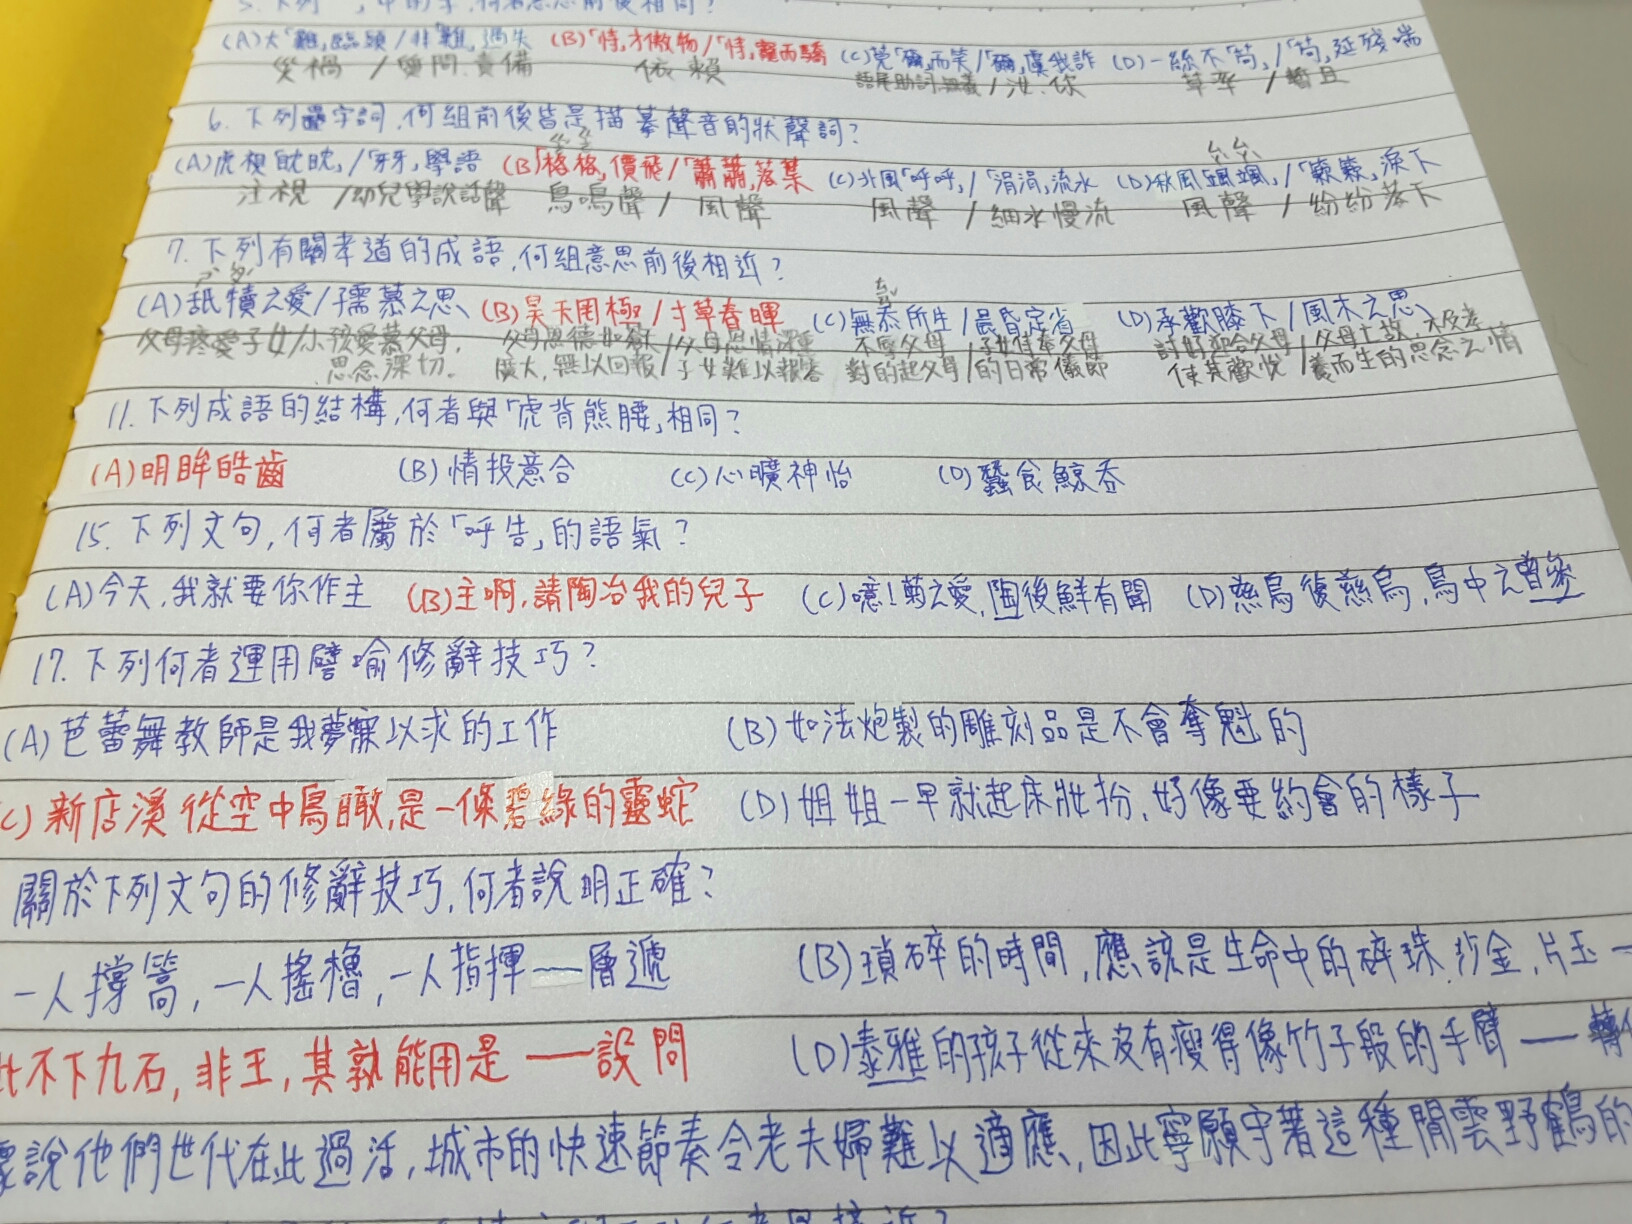 (A)大「難」臨頭/非「難」過失 (B)「恃」才傲物/「恃」寵而驕 (C)莞「爾」而笑/「爾」虞我詐 (D)一絲不「苟」/「苟」延殘喘
災禍 / 質問.責備 依賴 語尾助詞.無義/汝.你 草率 / 暫且
6. 下列疊字詞,何組前後皆是描摹聲音的狀聲詞?
(A)虎視眈眈」/「牙牙」學語 (B)「格格」價飛/「蕭蕭」落葉 (C)北風「呼呼」/「涓涓」流水 (D)秋風颯颯」/「簌簌」淚下
注視 /幼兒學說話聲 鳥鳴聲 / 風聲 風聲 /細水慢流 風聲 /紛紛落下
7. 下列有關孝道的成語,何組意思前後相近?
(A)舐犢之愛/孺慕之思 (B)昊天罔極/寸草春暉 (C)無忝所生/晨昏定省 (D)承歡膝下/風木之思
父母疼愛子女/小孩愛慕父母, 父母恩德如 /父母恩情深重 不辱父母 /子女侍奉父母 討好迎合父母/父母亡故.不及孝
思念深切。 廣大.無以回報/子女難以報答 對的起父母/的日常儀節 使其歡悅/養而生的思念之情
11. 下列成語的結構,何者與「虎背熊腰」相同?
(A)明眸皓齒 (B)情投意合 (C)心曠神怡 (D)蠶食鯨吞
15. 下列文句,何者屬於「呼告」的語氣?
(A)今天,我就要你作主 (B)主啊,請陶冶我的兒子 (C)噫!菊之愛,陶後鮮有聞 (D)慈烏復慈烏,鳥中之曾參
17. 下列何者運用譬喻修辭技巧?
(A)芭蕾舞教師是我夢寐以求的工作 (B)如法炮製的雕刻品是不會奪魁的
C)新店溪從空中鳥瞰,是一條碧綠的靈蛇 (D)姐姐一早就起床妝扮,好像要約會的樣子
關於下列文句的修辭技巧,何者說明正確?
一人撐篙,一人搖櫓,一人指揮——層遞 (B)瑣碎的時間,應該是生命中的碎珠.沙金.片玉—
此不下九石,非王,其孰能用是——設問 (D)泰雅的孩子從來沒有瘦得像竹子般的手臂——轉
說他們世代在此過活,城市的快速節奏令老夫婦難以適應,因此寧願守著這種閒雲野鶴的